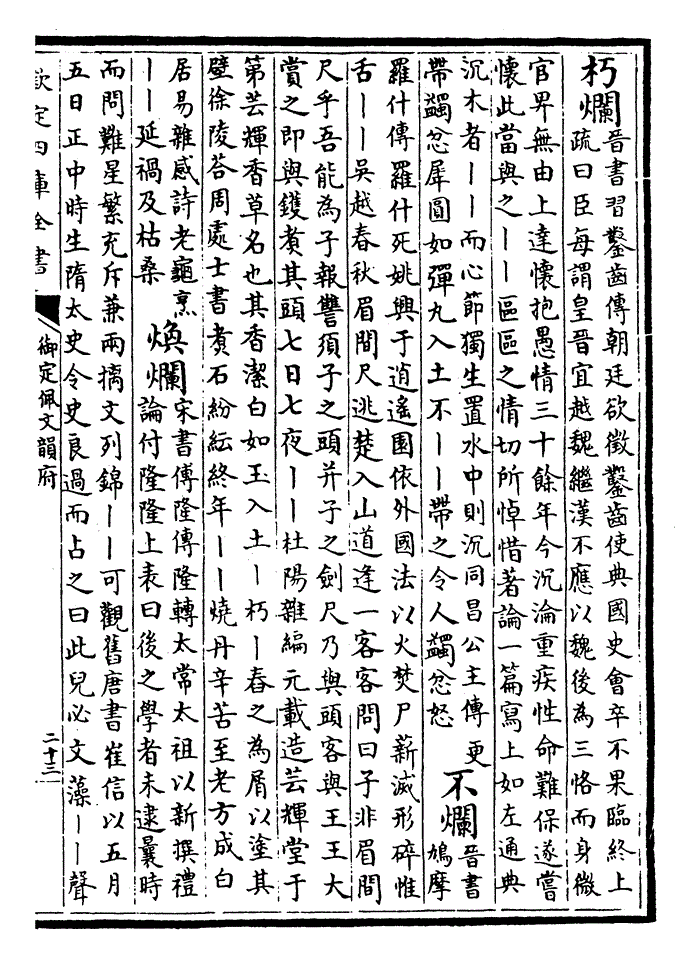 朽爛晉書習鑿齒傳朝廷欲徵鑿齒使典國史會卒不果臨終上
疏曰臣每謂皇晉宜越魏繼漢不應以魏後為三恪而身微
官卑無由上達懷抱愚情三十餘年今沉淪重疾性命難保遂嘗
懷此當與之丨丨區區之情切所悼惜著論一篇寫上如左通典
沉木者丨丨而心節獨生置水中則沉同昌公主傳更
帶蠲忿犀圓如彈丸入土不丨丨帶之令人蠲忿怒
不爛晉書鳩摩
羅什傳羅什死姚興于逍遙園依外國法以火焚尸薪滅形碎惟
舌丨丨吳越春秋眉間尺逃楚入山道逢一客客問曰子非眉間
尺乎吾能為子報讐須子之頭幷子之劍尺乃與頭客與王王大
賞之即與鑊煑其頭七日七夜丨丨杜陽雜編元載造芸輝堂于
第芸輝香草名也其香潔白如玉入土丨朽丨舂之為屑以塗其
壁徐陵荅周處士書煑石紛紜終年丨丨燒丹辛苦至老方成白
居易雜感詩老龜烹
丨丨延禍及枯桑
煥爛宋書傅隆傳隆轉太常太祖以新撰禮
論付隆隆上表曰後之學者未逮曩時
而問難星繁充斥兼兩摛文列錦丨丨可觀舊唐書崔信以五月
五日正中時生隋太史令史良過而占之曰此兒必文藻丨丨聲
欽定四庫全書
御定佩文韻府
二十三